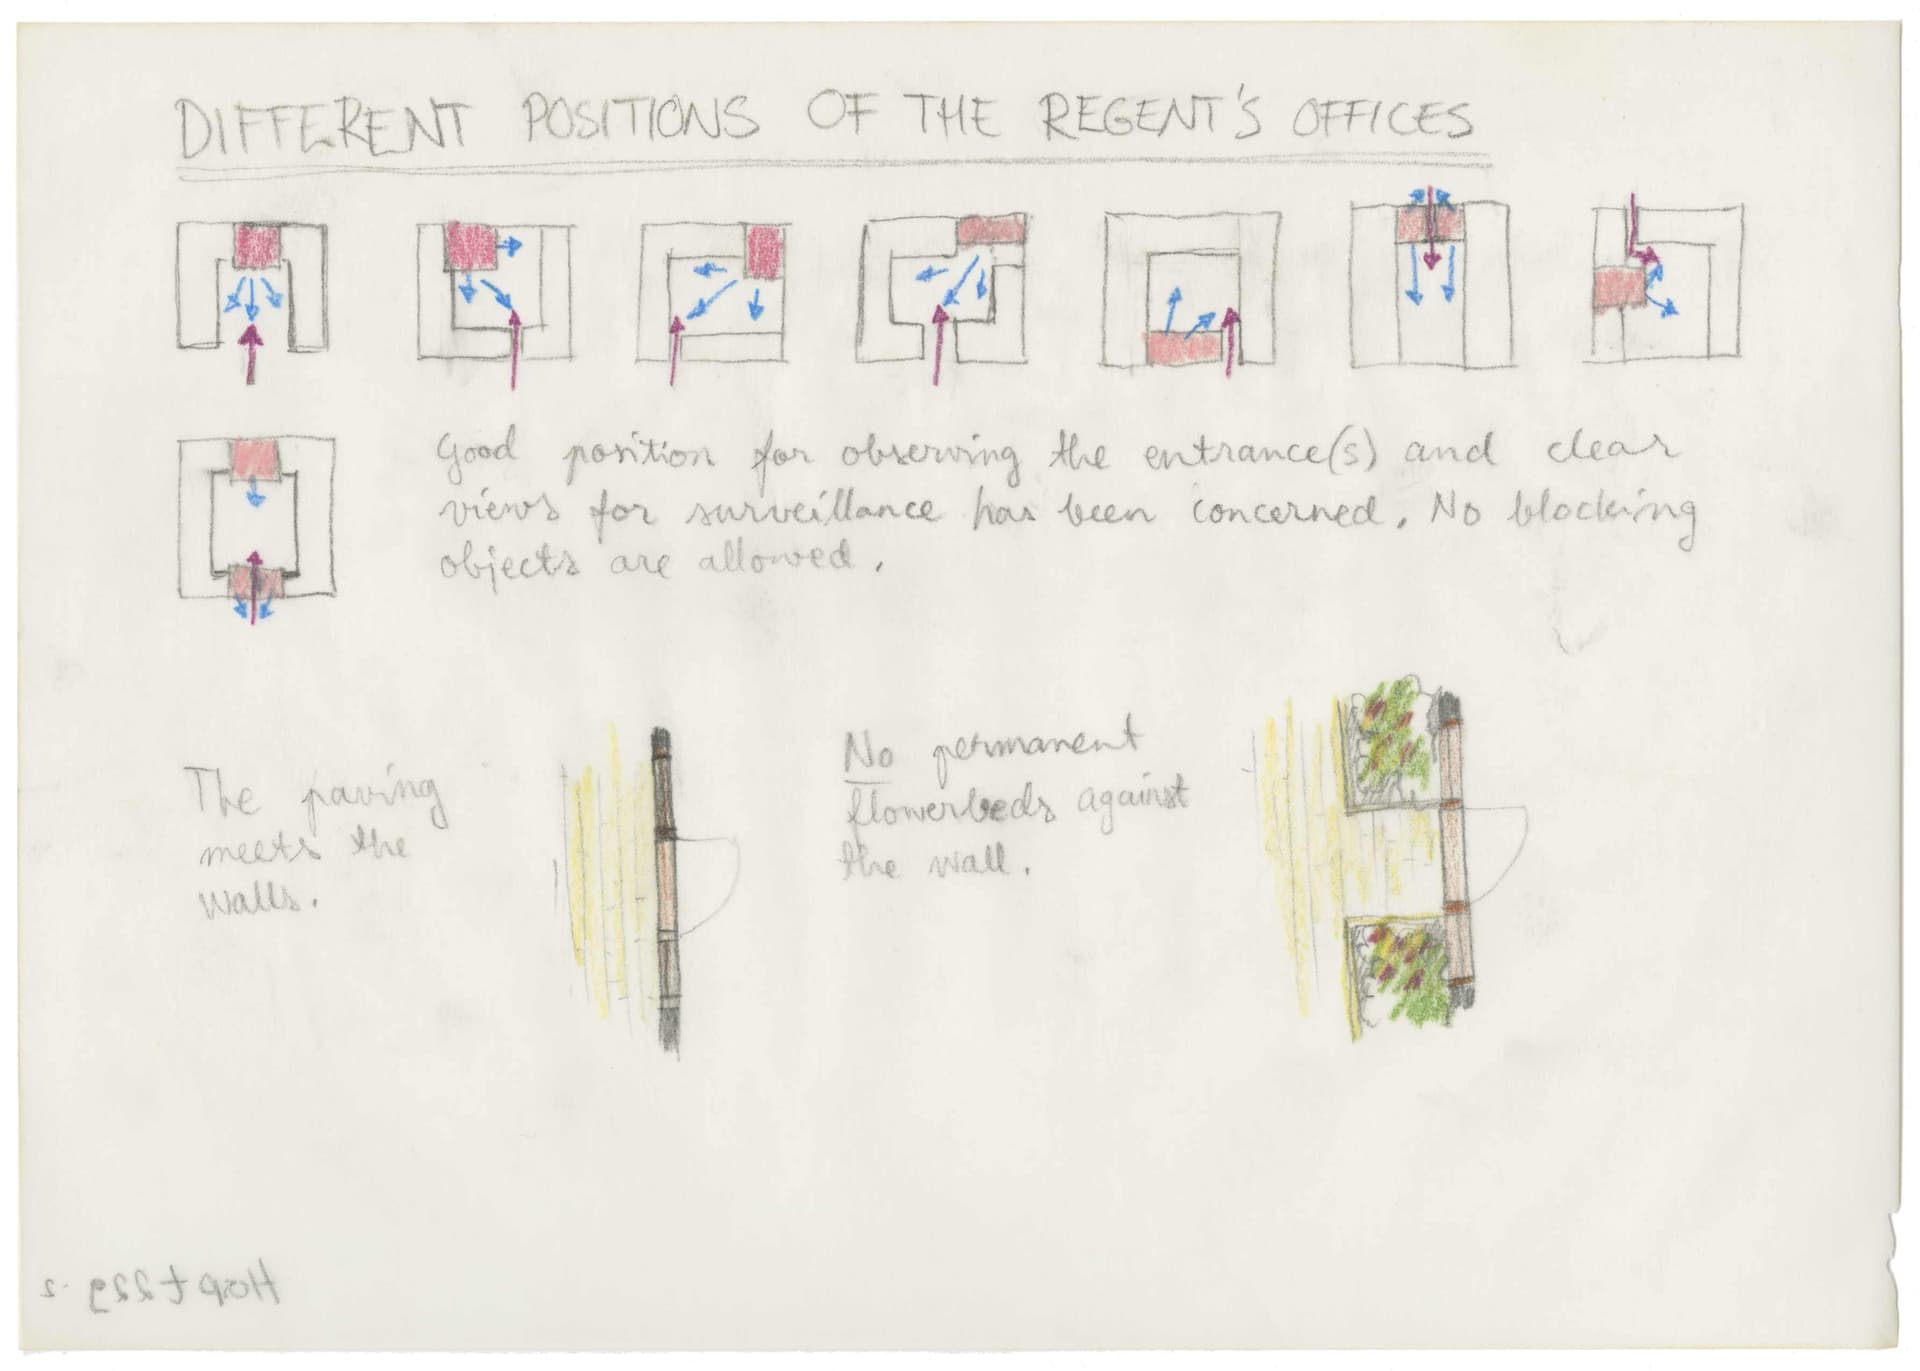 DIFFERENT POSITIONS OF THE REGENT'S OFFICES
Good position for observing the entrance(s) and clear
views for surveillance has been concerned. No blocking
objects are allowed.
The paving
meets the
walls.
No permanent
flowerbeds against
the wall.
Hop t 229-2